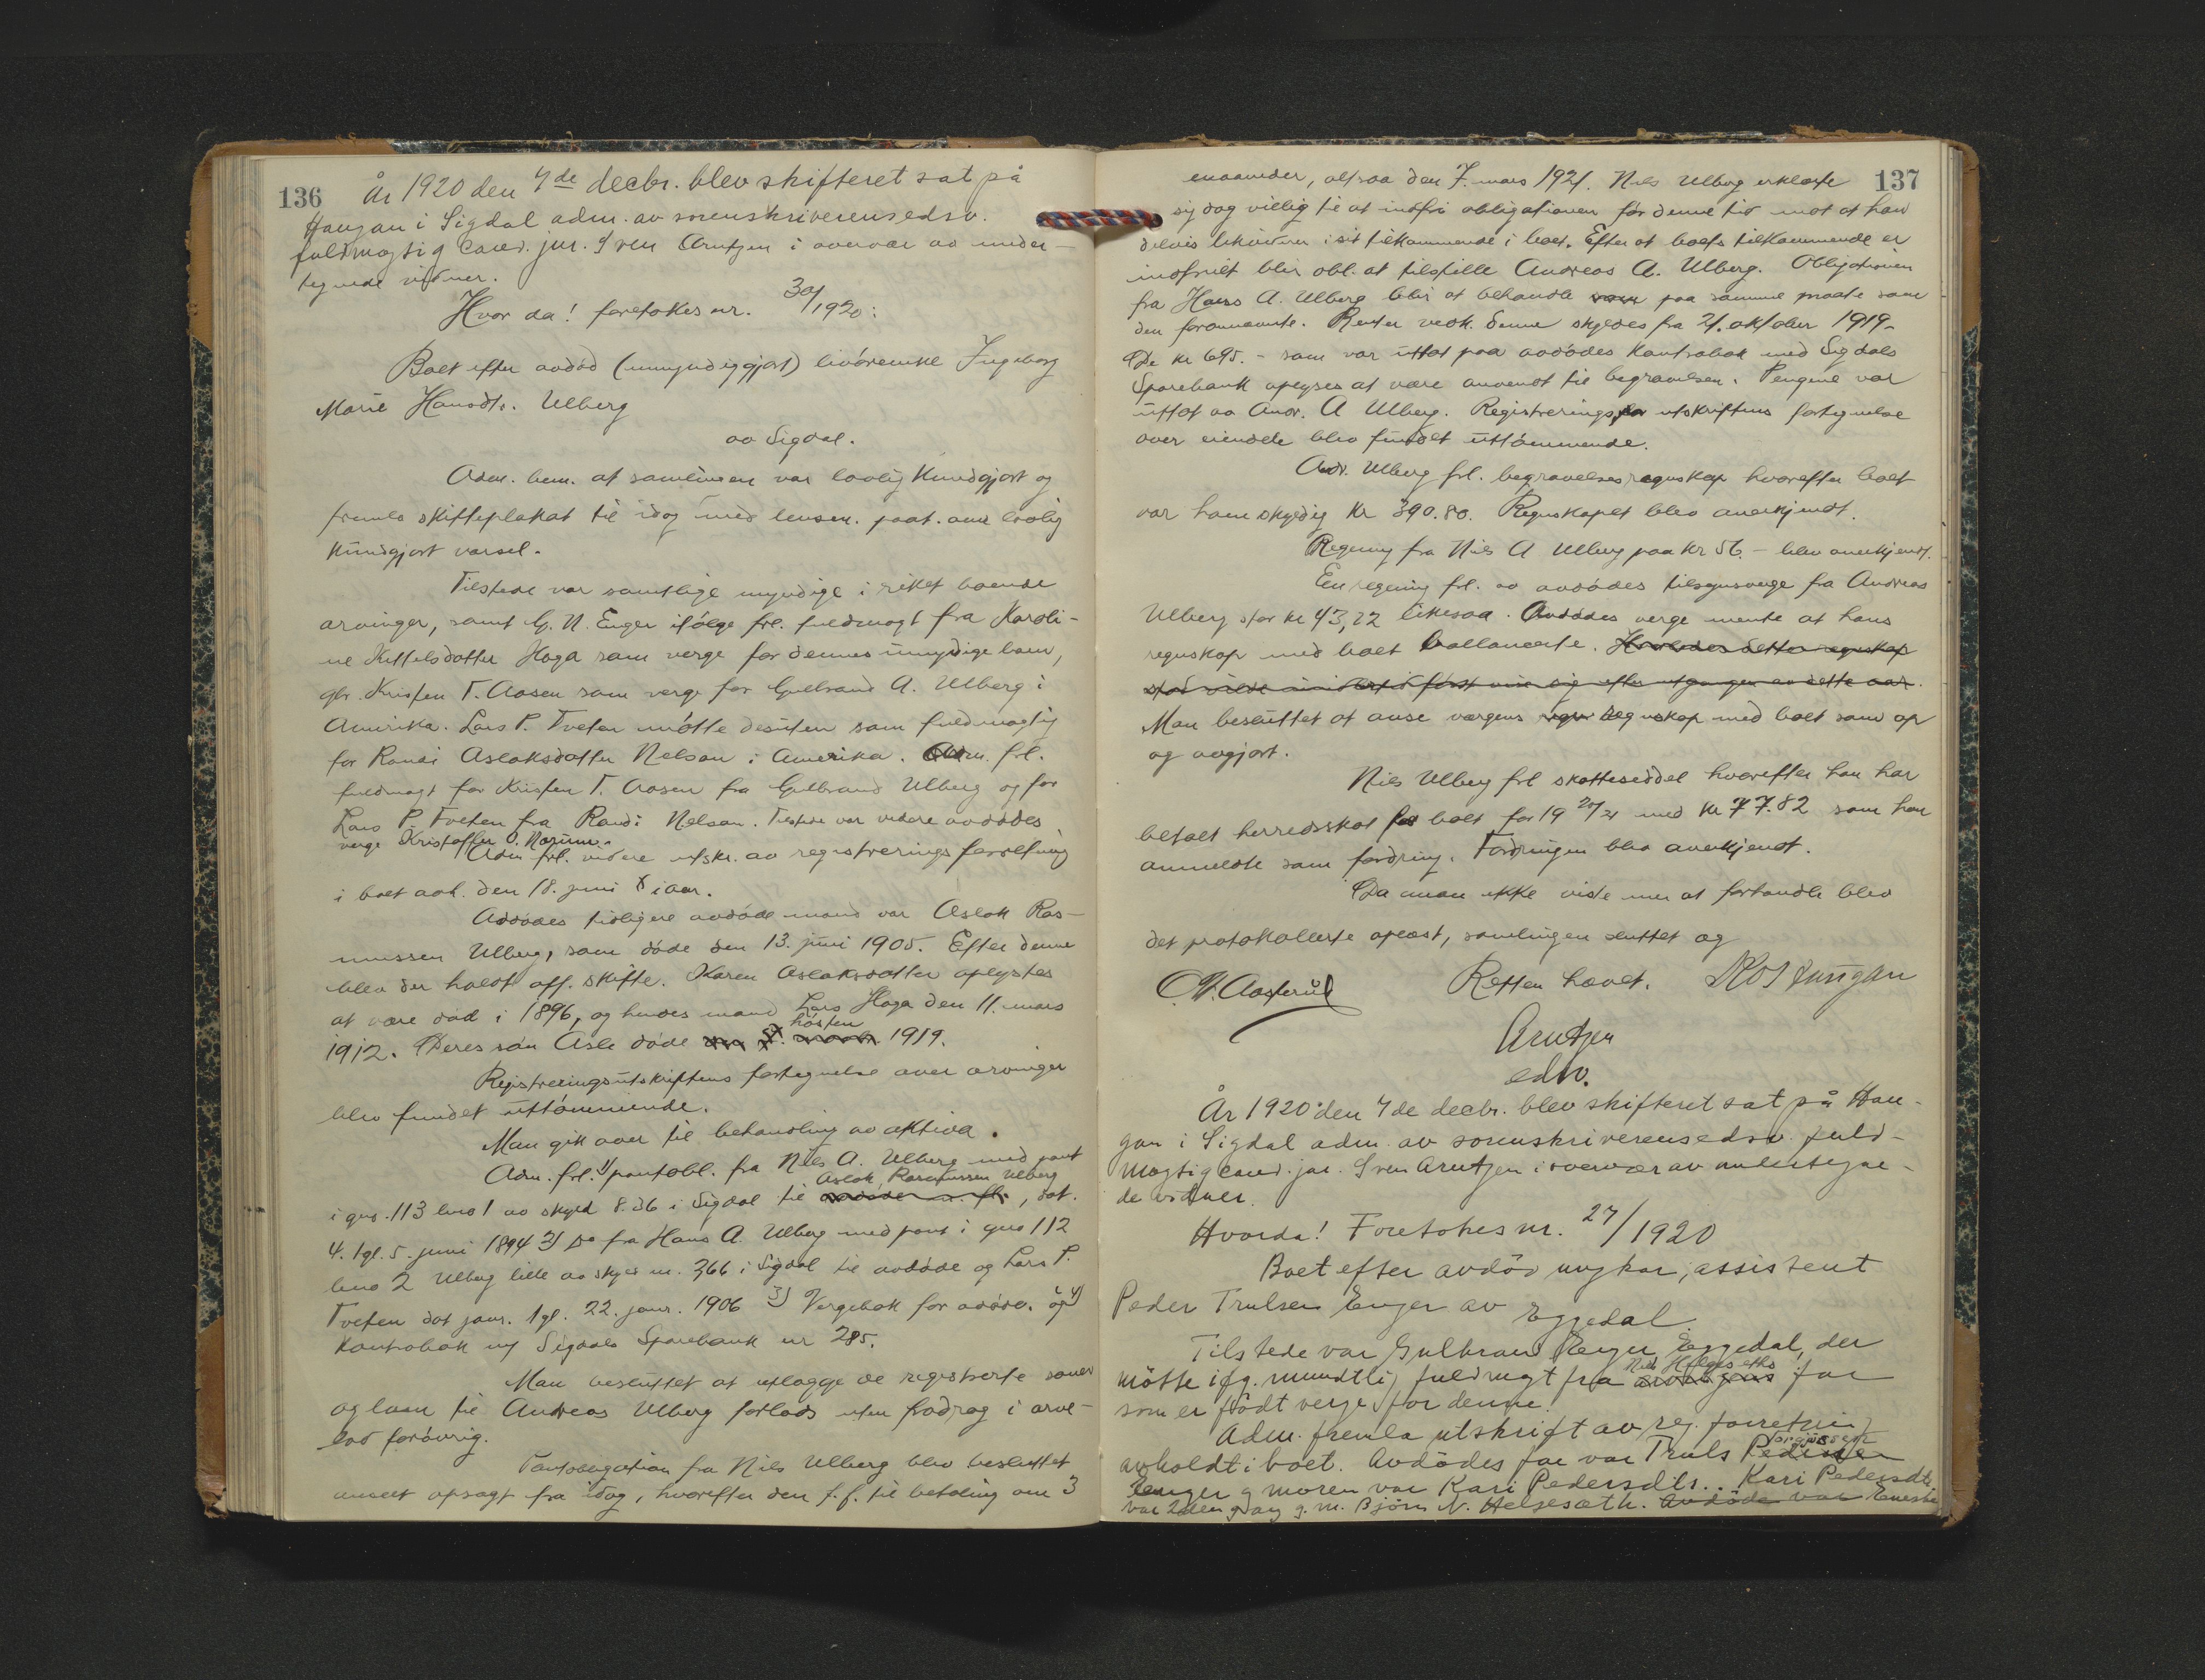 136
År 1920 den 7de decbr. blev skifteret sat på
Haugan i Sigdal adm. av sorenskriverens edsv.
fuldmægtig cand. jur. Sven Arntzen i overvær av under-
tegnede vidner.
Hvor da! foretokes nr. 30/1920:
Boet efter avdød (umyndiggjort) livørenke Ingeborg
Marie Hansdtr. Ulberg
av Sigdal.
Adm. bem. at samlingen var lovlig kundgjort og
fremla skifteplakat til idag med lensm. paat. om lovlig
kundgjort varsel.
Tilstede var samtlige myndige i riket boende
arvinger, samt G. N. Enger ifølge frl. fuldmagt fra Karoli-
ne Kittelsdatter Hoga som verge for dennes umyndige barn,
gbr. Kristen T. Aasen som verge for Gulbrand A. Ulberg i
Amerika. Lars P. Tveten møtte desuten som fuldmægtig
for Randi Aslaksdatter Nelson i Amerika. Adm. frl.
fuldmagt for Kristen T. Aasen fra Gulbrand Ulberg og for
Lars P. Tveten fra Randi Nelson. Tilstede var videre avdødes
verge Kristoffer O. Narum.
Adm frl. videre utskr. av registreringsforretning
i boet avh. den 18. juni iaar.
Avdødes tidligere avdøde mand var Aslak Ras-
mussen Ulberg, som døde den 13. juni 1905. Efter denne
blev der holdt off. skifte. Karen Aslaksdatter oplystes
at være død i 1896, og hendes mand Lars Hoga den 11. mars
1912. Deres søn Asle døde høsten 1919.
Registreringsutskriftens fortegnelse over arvinger
blev fundet uttømmende.
Man gik over til behandling av aktiva.
Adm. frl. 1) pantobl. fra Nils A. Ulberg med pant
i gno. 113 bno 1 av skyld 8.36 i Sigdal til Aslak Rasmussen Ulberg, dat.
4. tgl. 5. juni 1894 2) Do fra Hans A. Ulberg med pant i gno 112
bno 2 Ulberg lille av skyld m. 3,66 i Sigdal til avdøde og Lars P.
Tveten dat janr. tgl. 22. janr. 1906 3) Vergebok for avdøde. og 4)
Kontrabok m/ Sigdals Sparebank nr 285.
Man besluttet at utlægge de registrerte
til Andreas Ulberg uten fradrag i arve-
lod forøvrig.
Pantobligation fra Nils Ulberg blev besluttet
ansett opsagt fra idag, hvorefter den f. f. til betaling om 3
137
maaneder, altsaa den 7. mars 1921. Nils Ulberg erklærte
sig dog villig til at indfri obligationen før denne tid mot at han
delvis likviderer i sit tilkommende i boet. Efter at boets tilkommende er
indfriet blir obl. at tilstille Andreas A. Ulberg. Obligationen
fra Hans A. Ulberg blir at behandle paa samme maate som
den forannævnte. Renter vedk. denne skyldes fra 21. oktober 1919.
De kr 695.- som var uttat paa avdødes kontrabok med Sigdals
Sparebank oplyses at være anvendt til begravelsen. Pengene var
uttat av Andr. A Ulberg. Registreringsutskriftens fortegnelse
over eiendele blev fundet uttømmende.
Andr. Ulberg frl. begravelsesregnskap hvorefter boet
var ham skyldig kr 390.80. Regnskapet blev anerkjendt.
Regning fra Nils A Ulberg paa kr 56.- blev anerkjendt.
En regning frl. av avdødes tilsynsverge fra Andreas
Ulberg stor kr 43,22 likesaa. Avdødes verge mente at hans
regnskap med boet ballancerte. Hvorledes dette regnskap
stod vilde imidlertid først vise sig efter utgangen av dette aar.
Man besluttet at anse vergens regnskap med boet som op
og avgjort.
Nils Ulberg frl skatteseddel hvorefter han har
betalt herredsskat for boet for 19 20/21 med kr 77.82 som han
anmeldte som fordring. Fordringen blev anerkjendt.
Da man ikke viste mer at forhandle blev
det protokollerte oplæst, samlingen sluttet og
Retten hævet.
Arntzen
edsv.
År 1920 den 7de decbr. blev skifteret sat på Hau-
gan i Sigdal adm. av sorenskriverens edsv. fuld-
mægtig cand. jur. Sven Arntzen i overvær av undertegne-
de vidner.
Hvorda! Foretokes nr. 27/1920
Boet efter avdød ungkar, assistent
Peder Trulsen Enger av Eggedal.
Tilstede var Gulbrand Enger, Eggedal, der
møtte ifg. mundtlig fuldmagt fra Nils Helgeseths far
som er født verge for denne.
Adm. fremla utskrift av reg. forretning
avholdt i boet. Avdødes far var Truls
Enger og moren var Kari Pedersdtr.. Kari Pedersdtr.
var 2den gang g. m. Bjørn N. Helgesæth. Avdøde var Eneste